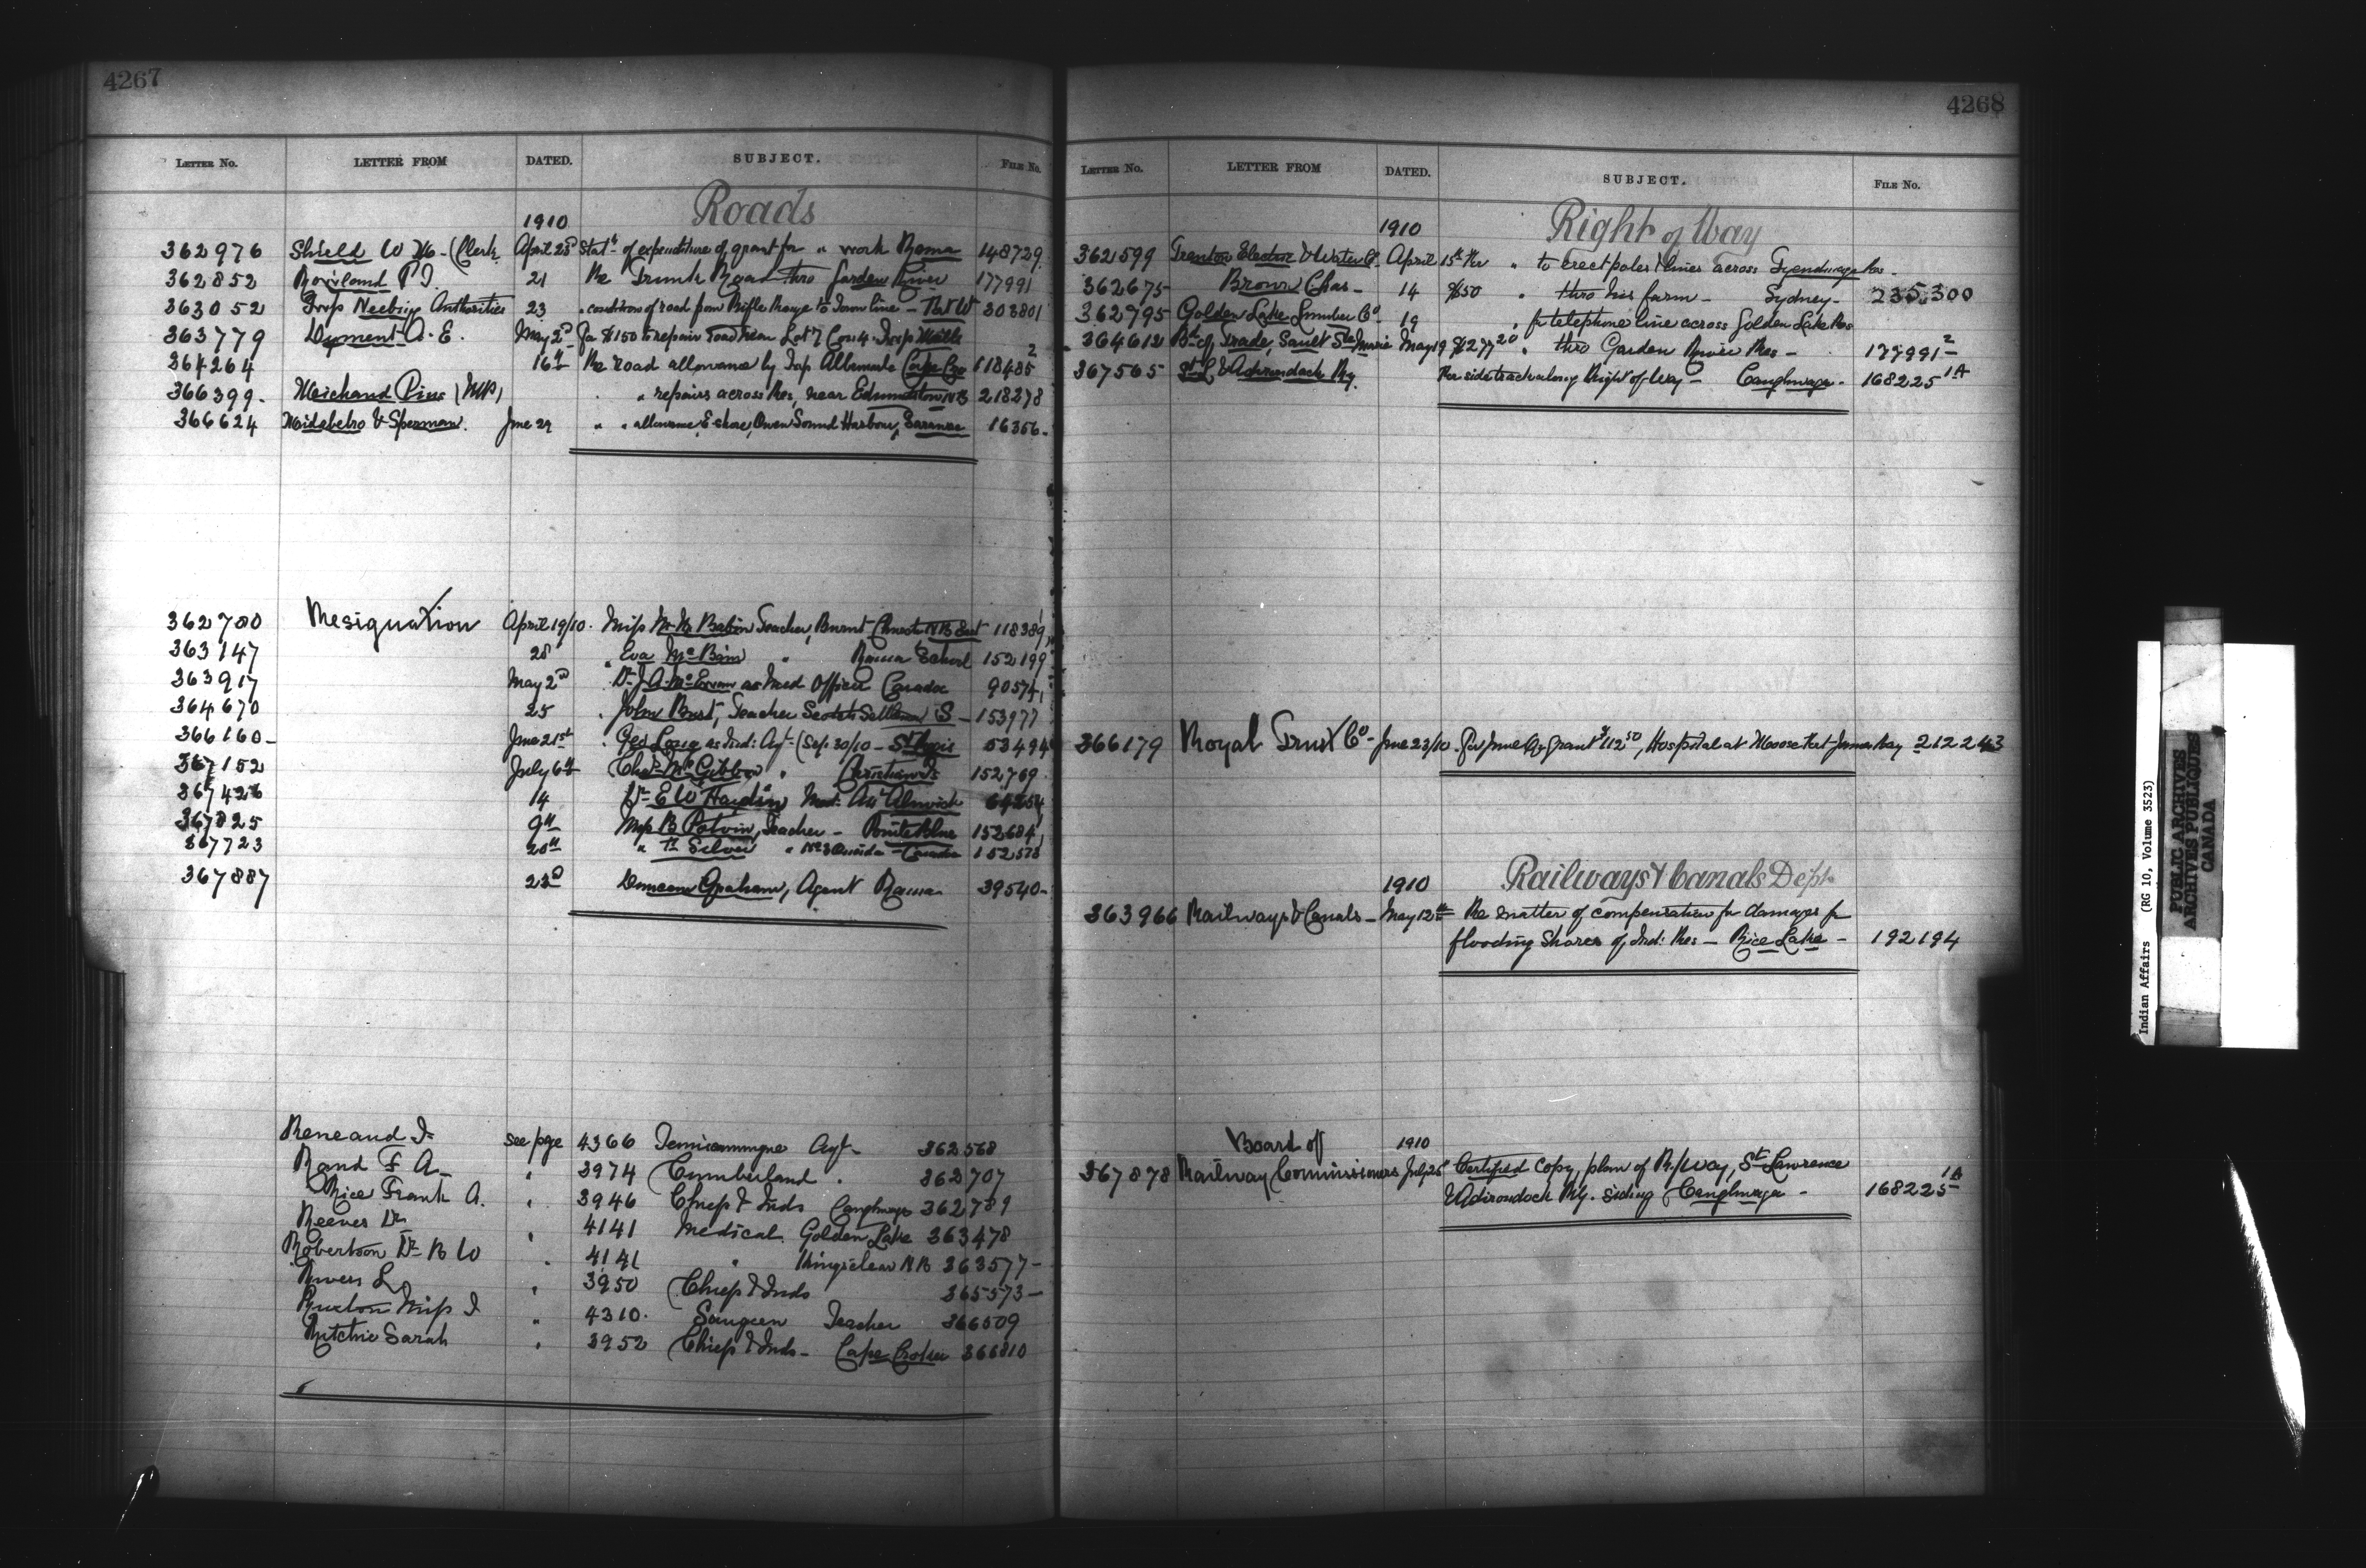 4267
LETTER No. LETTER FROM DATED. SUBJECT. FILE No.
Roads
1910
362976 Shield W (Clerk April 23d Statt of expenditure of grant for " work 148729
362852 P. J. 21 Re Trunk Road thro Garden River 177991
363052 Neebing Authorities 23 " condition of road from Rifle Range to Town line 303801
363779 Dyment A. E. May 2d $150 to repair road near Lot 7 Con: 4
364264 16th Re road allowance by Albemarle Cape Cro 118485 2
366399 Michaud Pius (MP) " repairs across Res, near Edmundston NB 218278
366624 & Sperman. June 29 " " allowance E shore, Owen Sound Harbour, Sarawak 16356
Resignation
362780 April 19/10. Miss Babin Teacher, Burnt Church NB 118389
363147 28 " Eva McBain " Rama School 152199
363917 May 2d Dr J. A. as Med Officer Caradoc 90574
364670 25 John Teacher Scotch Settlement S 153977
366160 June 21st Geo Long as Ind: Agt (Sep: 30/10 - St Regis 53494
367152 July 6th Chas McGibbon " Christian Is 152769
367426 14 Dr E W Med: Att Alnwick
367825 9th Miss B Potvin, Teacher - Pointe Bleue 152684
367723 20th " Silver " No 3 Oneida - Caradoc 152578
367887 23d Duncan Graham, Agent Rama 39540
Reneaud J. see page 4366 Temiscamingue Agt 362568
Rand F A " 3974 Cumberland 362707
Rice Frank A. " 3946 Chiefs & Inds Caughnawaga 362789
Reeves Dr " 4141 Medical Golden Lake 363478
Robertson Dr R W " 4141 " Kingsclear NB 363577
Rivers L " 3950 Chiefs & Inds 365573
Ruxton Miss J " 4310 Saugeen Teacher 366509
Ritchie Sarah " 3952 Chiefs & Inds - Cape Croker 366810
4268
LETTER No. LETTER FROM DATED. SUBJECT. FILE No.
Right of Way
1910
362599 Trenton Electric & Water Co April 15th Re " to erect poles & lines across Tyendinaga Res
362675 Brown Chas 14 $50 " thro his farm - Sydney 235,300
362795 Golden Lake Lumber Co 19 " for telephone line across Golden Lake Res
364612 Bd of Trade, Sault Ste Marie May 19 $277 20 " thro Garden River Res - 177991 2
367565 St L & Adirondack Ry. Re side track along Right of Way - Caughnawaga 168225 1A
366179 Royal Trust Co June 23/10 For June Qr grant $112 50, Hospital at Moose Fort James Bay 212243
Railways & Canals Dept
1910
363966 Railways & Canals May 12th Re matter of compensation for damages for
flooding Shores of Ind: Res - Rice Lake - 192194
Board of 1910
367878 Railway Commissioners July 26 Certified copy, plan of R/Way, St Lawrence
& Adirondack Ry. siding Caughnawaga - 168225 1A
Indian Affairs (RG 10, Volume 3523)
PUBLIC ARCHIVES
ARCHIVES PUBLIQUES
CANADA